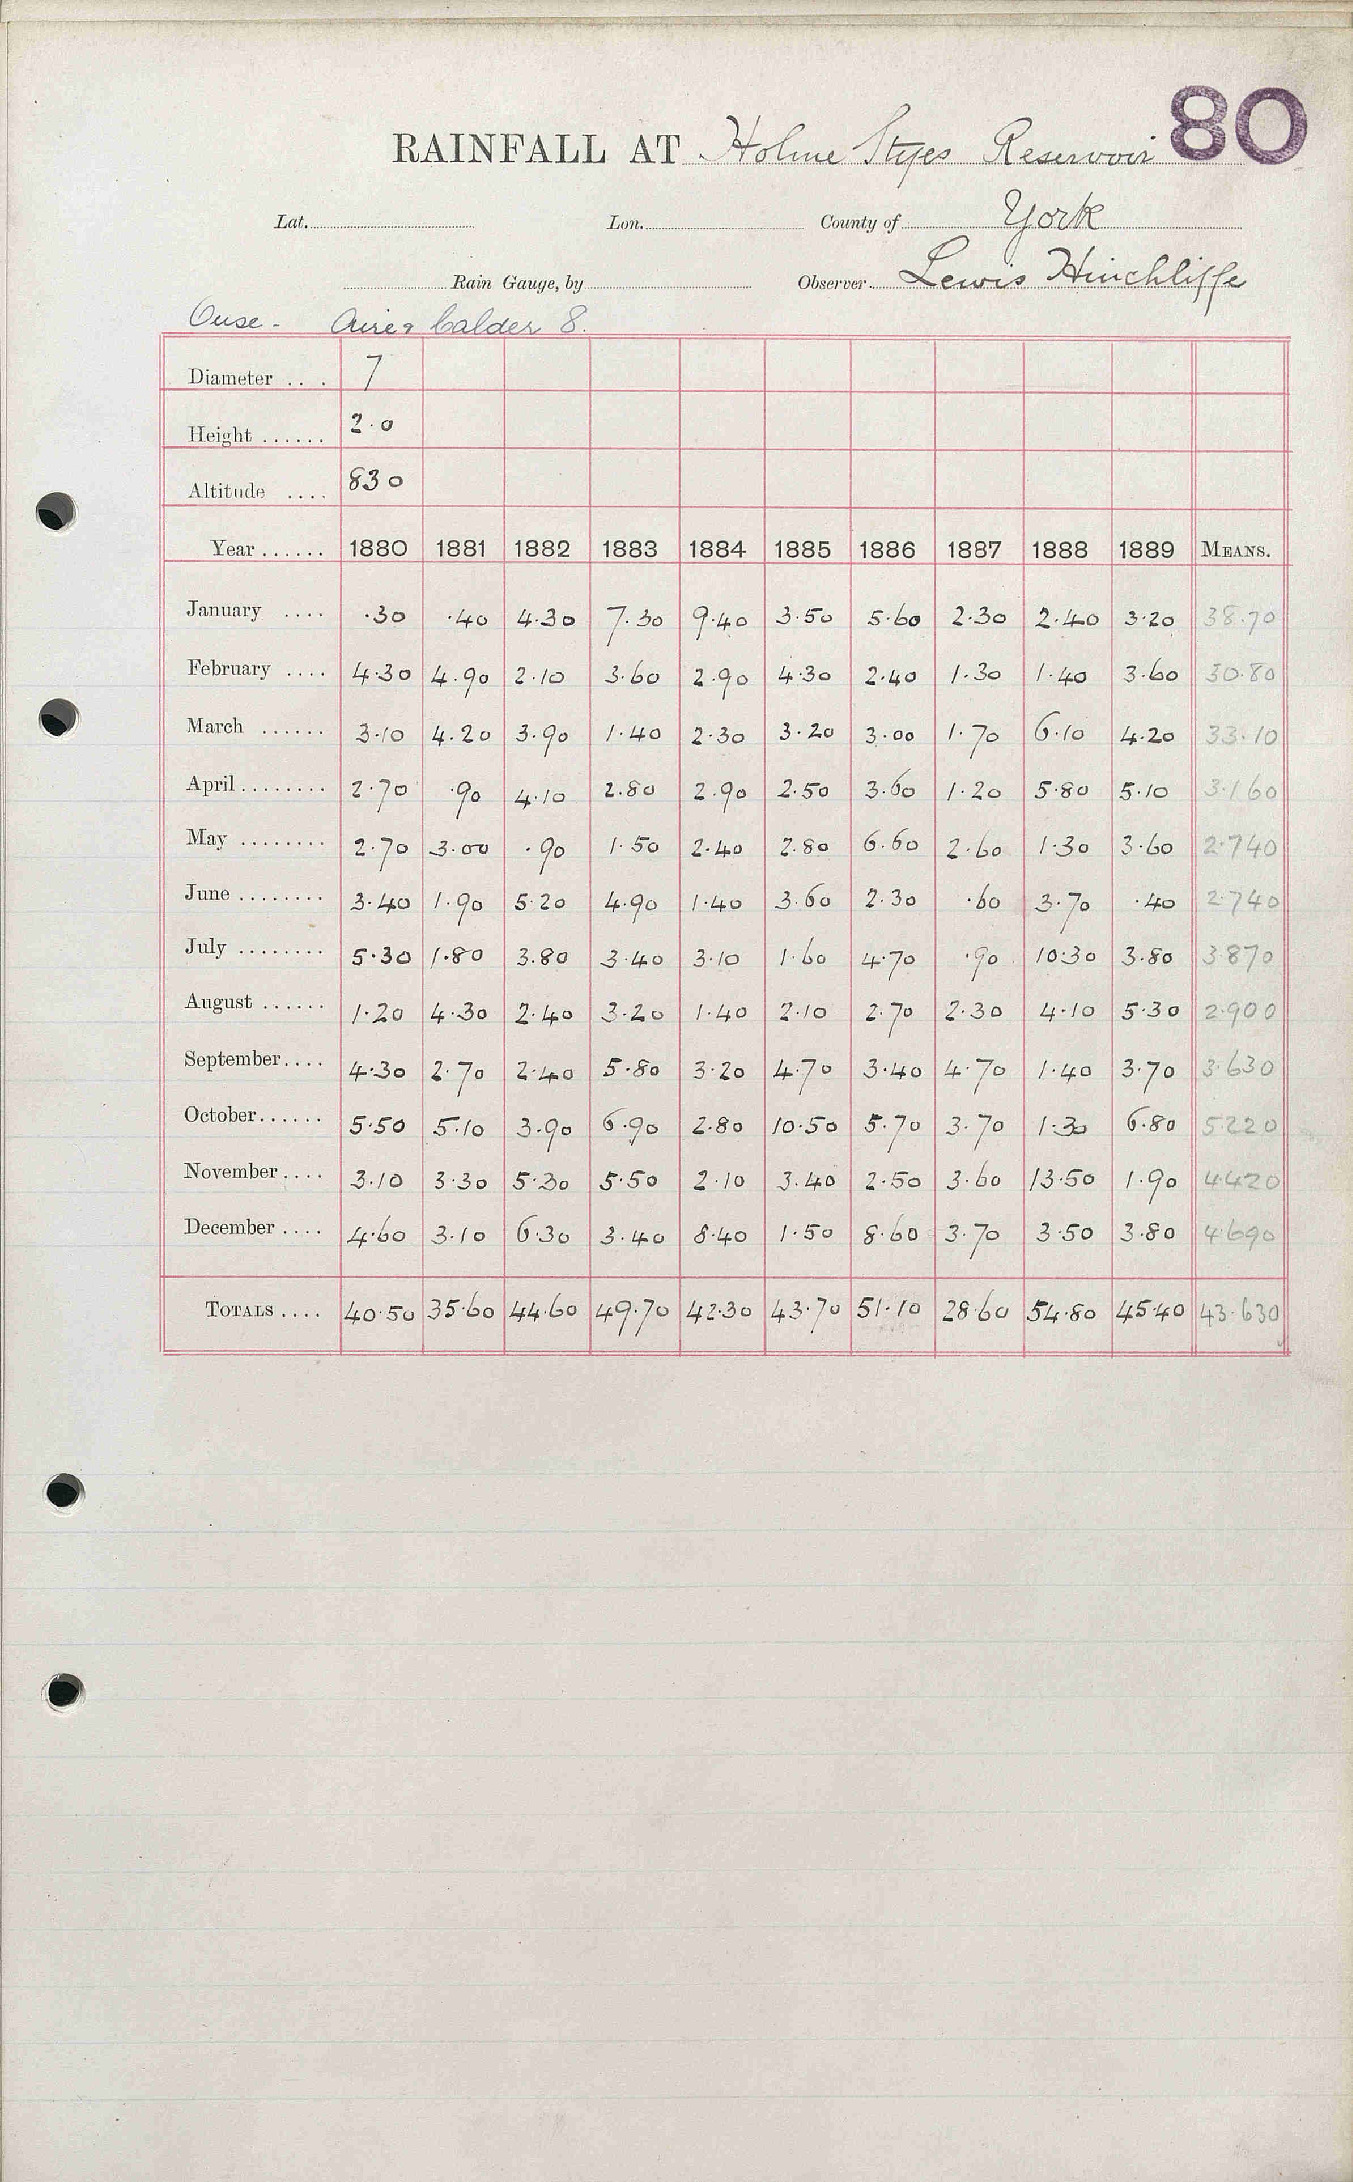 80
RAINFALL AT Holme Styes Reservoir
Lat. Lon. County of York
Rain Gauge, by Observer. Lewis Hinchliffe
Ouse - Aire & Calder 8.
Diameter .. . 7
Height ...... 2.0
Altitude .... 830
Year ...... 1880 1881 1882 1883 1884 1885 1886 1887 1888 1889 MEANS.
January .... .30 .40 4.30 7.30 9.40 3.50 5.60 2.30 2.40 3.20 38.70
February .... 4.30 4.90 2.10 3.60 2.90 4.30 2.40 1.30 1.40 3.60 30.80
March ...... 3.10 4.20 3.90 1.40 2.30 3.20 3.00 1.70 6.10 4.20 33.10
April ........ 2.70 .90 4.10 2.80 2.90 2.50 3.60 1.20 5.80 5.10 3.160
May ........ 2.70 3.00 .90 1.50 2.40 2.80 6.60 2.60 1.30 3.60 2.740
June ........ 3.40 1.90 5.20 4.90 1.40 3.60 2.30 .60 3.70 .40 2.740
July ........ 5.30 1.80 3.80 3.40 3.10 1.60 4.70 .90 10.30 3.80 3.870
August ...... 1.20 4.30 2.40 3.20 1.40 2.10 2.70 2.30 4.10 5.30 2.900
September.... 4.30 2.70 2.40 5.80 3.20 4.70 3.40 4.70 1.40 3.70 3.630
October...... 5.50 5.10 3.90 6.90 2.80 10.50 5.70 3.70 1.30 6.80 5.220
November.... 3.10 3.30 5.30 5.50 2.10 3.40 2.50 3.60 13.50 1.90 4.420
December .... 4.60 3.10 6.30 3.40 8.40 1.50 8.60 3.70 3.50 3.80 4.690
TOTALS .... 40.50 35.60 44.60 49.70 42.30 43.70 51.10 28.60 54.80 45.40 43.630